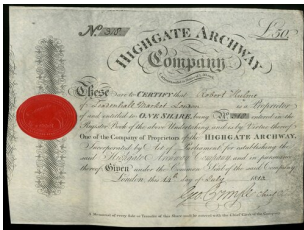 No. 318 £50
HIGHGATE ARCHWAY
Company
These are to CERTIFY that Robert
of Leadenhall Market London is a Proprietor
of and entitled to ONE SHARE, being No. 318 entered in the
Register Book of the above Undertaking and is by Virtue thereof
One of the Company of Proprietors of the HIGHGATE ARCHWAY,
Incorporated by Act of Parliament for establishing the
said Highgate Archway Company and in pursuance
thereof Given under the Common Seal of the said Company
London, this day of July 1812
Geo.